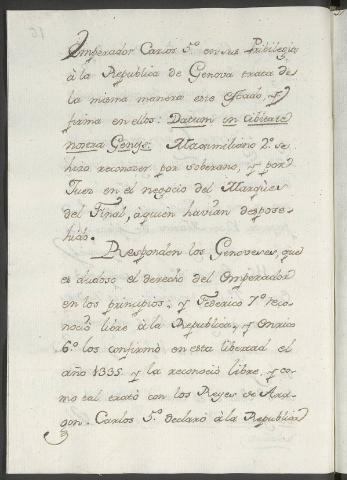 Emperador Carlos 5.º en sus Privilegios
à la Republica de Genova trata de
la misma manera este Estado, y
firma en ellos: Datum in Cibitate
nostra Genuę: Maximiliano 2.º se
hizo reconocer por soberano, y por
Juez en el negocio del Marques
del Final, à quien havian despose-
hido.
Responden los Genoveses, que
es dudoso el derecho del Emperador
en los principios, y Federico 7.º reco-
nociò libre à la Republica, y Enrico
6.º los confirmò en esta libertad el
año 1335 y la reconociò libre, y co-
mo tal tratò con los Reyes de Ara-
gon. Carlos 5.º declarò à la Republica